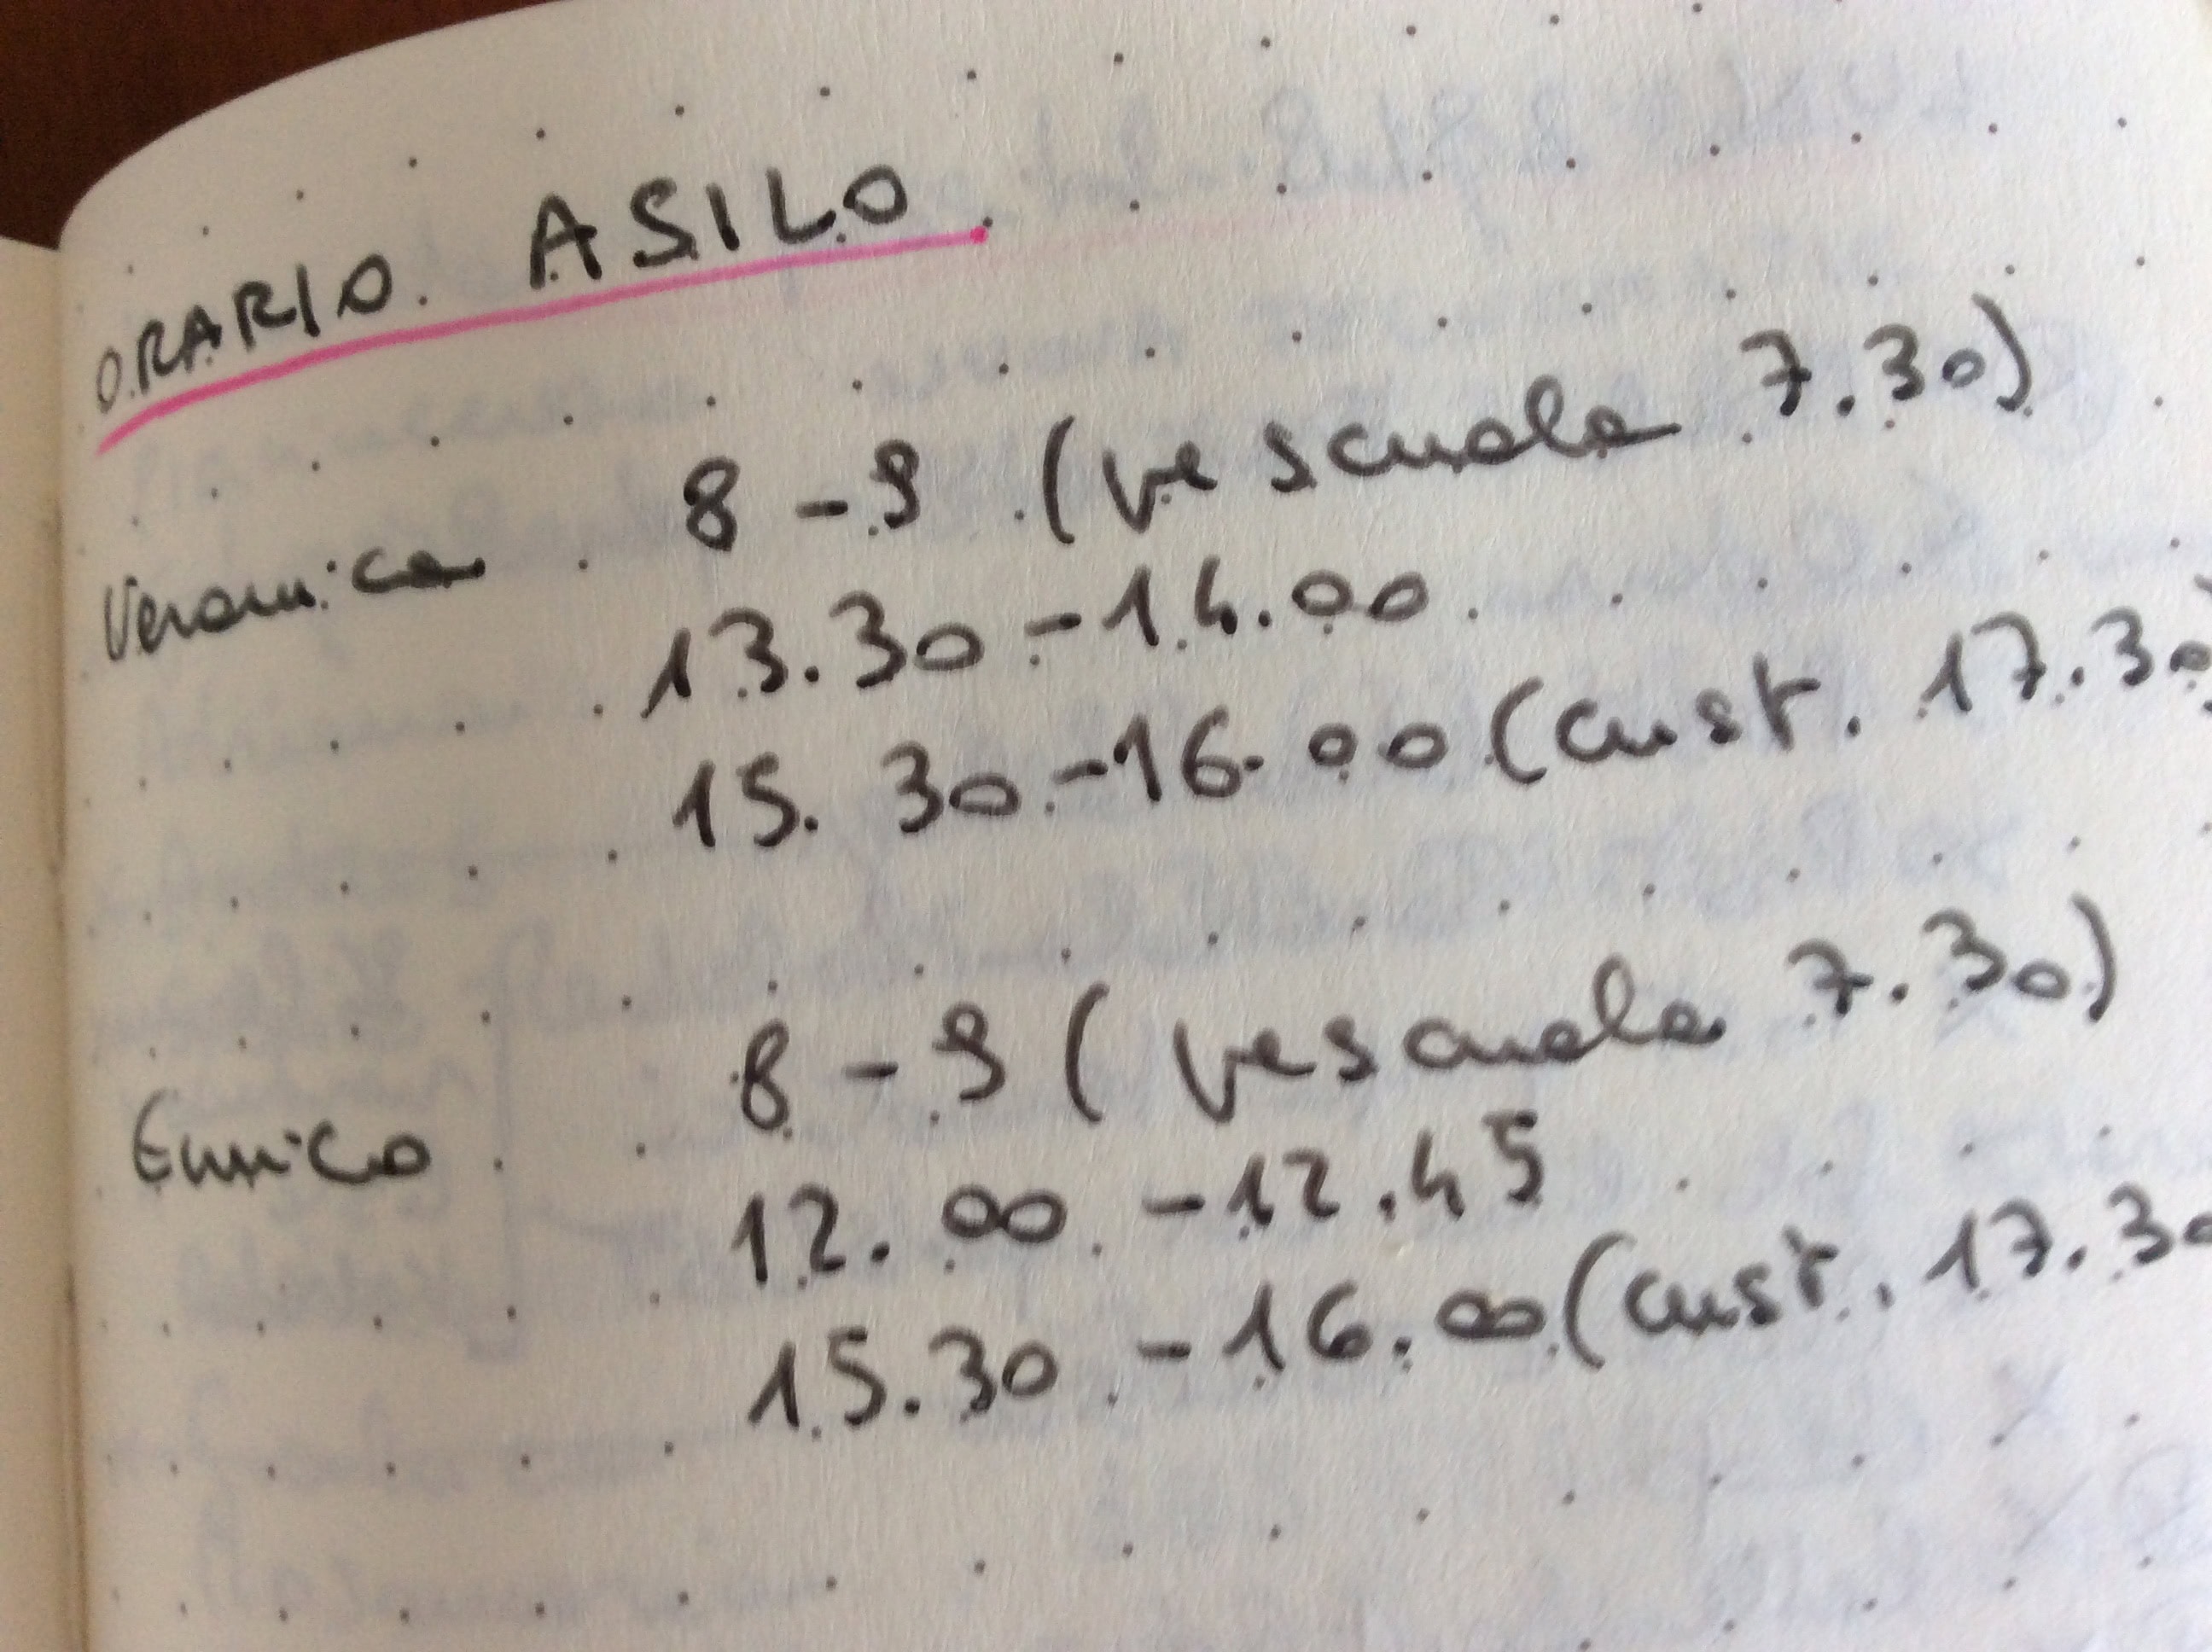 ORARIO ASILO
Veronica 8-9 (prescuola 7.30)
13.30-14.00
15.30-16.00 (cust. 17.30)
Enrico 8-9 (prescuola 7.30)
12.00-12.45
15.30-16.00 (cust. 17.30